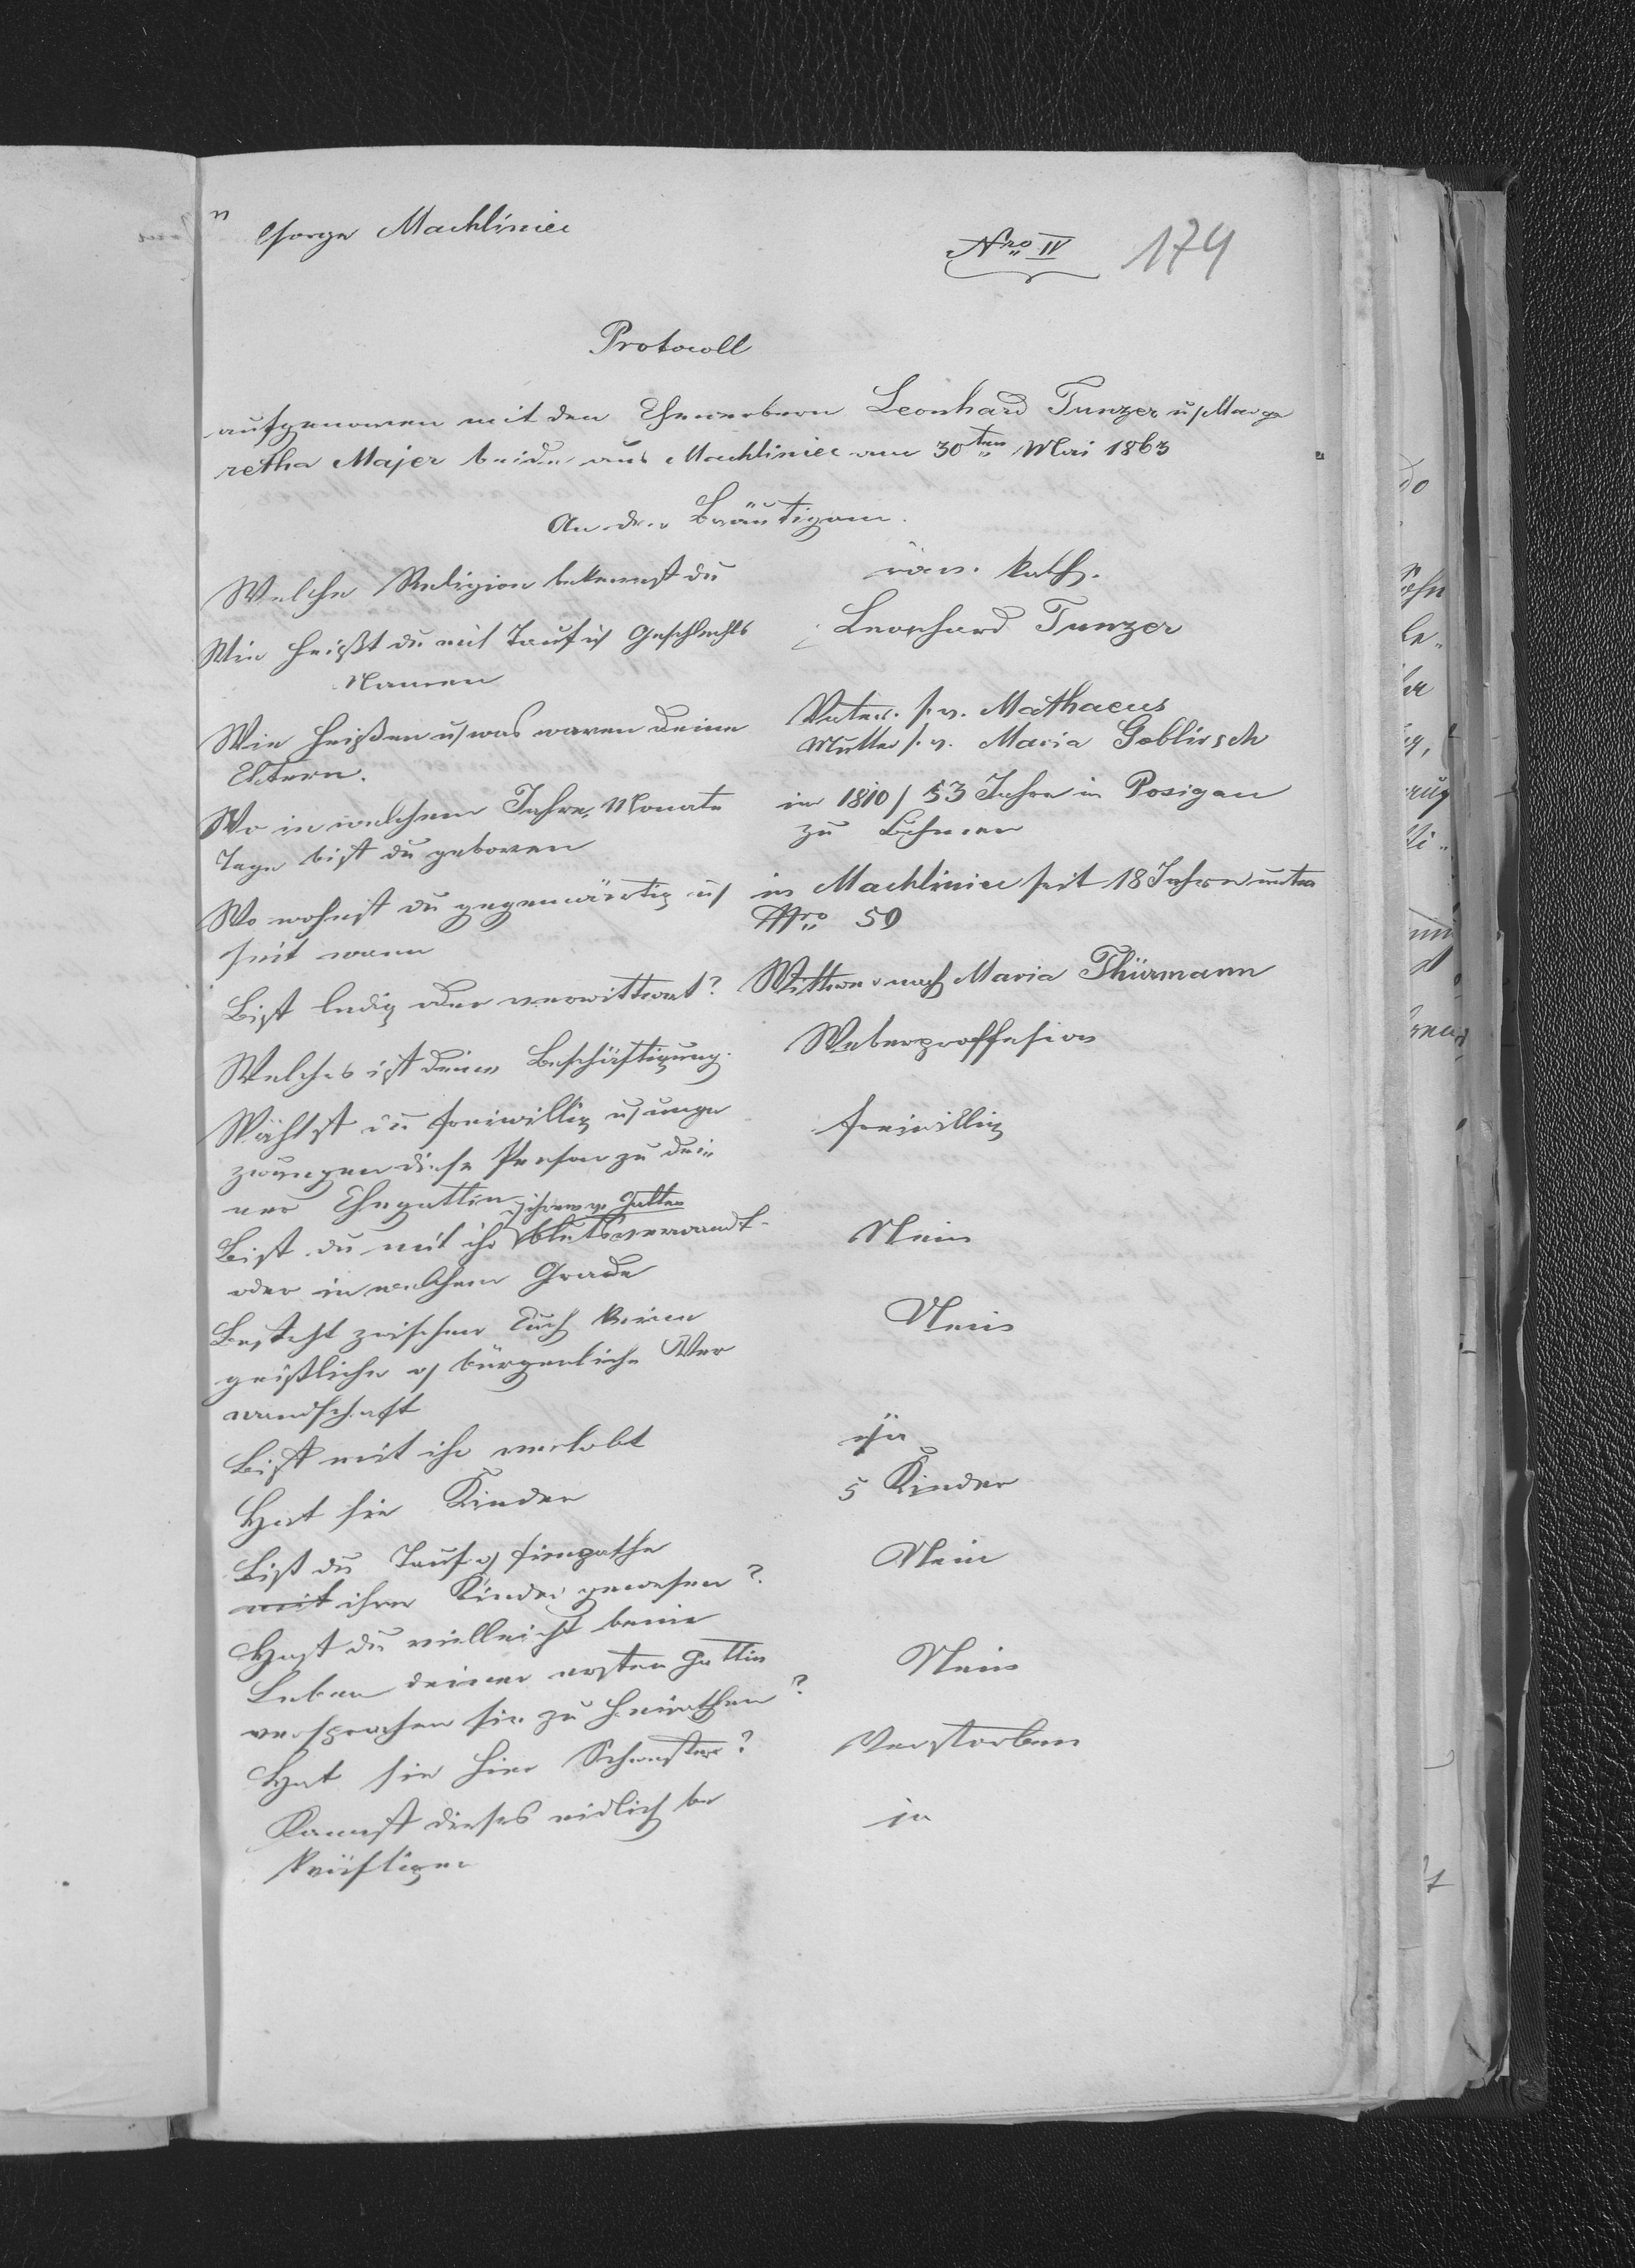 Machliniec
Nro IV 174
Protocoll
aufgenomen mit den Ehewerbern Leonhard Tunzer u/ Marga
retha Majer beide aus Machliniec am 30ten Mai 1863
An den Bräutigam.
Welche Religion bekennst du
röm. kath.
Wie heißt du mit Tauf u/ Geschlechts
Namen
Leonhard Tunzer
Wie heißen u/ was waren deine
Eltern.
Vater Mathaeus
Mutter Maria Goblirsch
Wo in welchem Jahre, Monate
Tage bist du geboren
in 1810 / 53 Jahre in Posigau
zu Böhmen
Wo wohnst du gegenwärtig u/
seit wann
in Machliniec seit 18 Jahren unter
Nro 59
Bist ledig oder verwittwet?
Wittwer nach Maria Thürmann
Welches ist deine Beschäftigung.
Weberproffesion
Wählst du freiwillig u/ unge
zwungen diese Person zu dei-
ner Ehegattin
freiwillig
Gatten
Bist du mit ihr blutsverwandt
oder in welchem Grade
Nein
Besteht zwischen Euch keine
geistliche o/ bürgerliche Ver
wandschaft
Nein
Bist mit ihr verlobt
ja
Hat sie Kinder
5 Kinder
Bist du Tauf o/ Firmpathe
mit ihrer Kinder gewesen?
Nein
Hast du vielleicht beim
Leben deiner ersten Gattin
versprochen sie zu heirathen?
Nein
Hat sie hier Schwester?
Verstorben
Kannst dieses eidlich be
kräftigen
ja